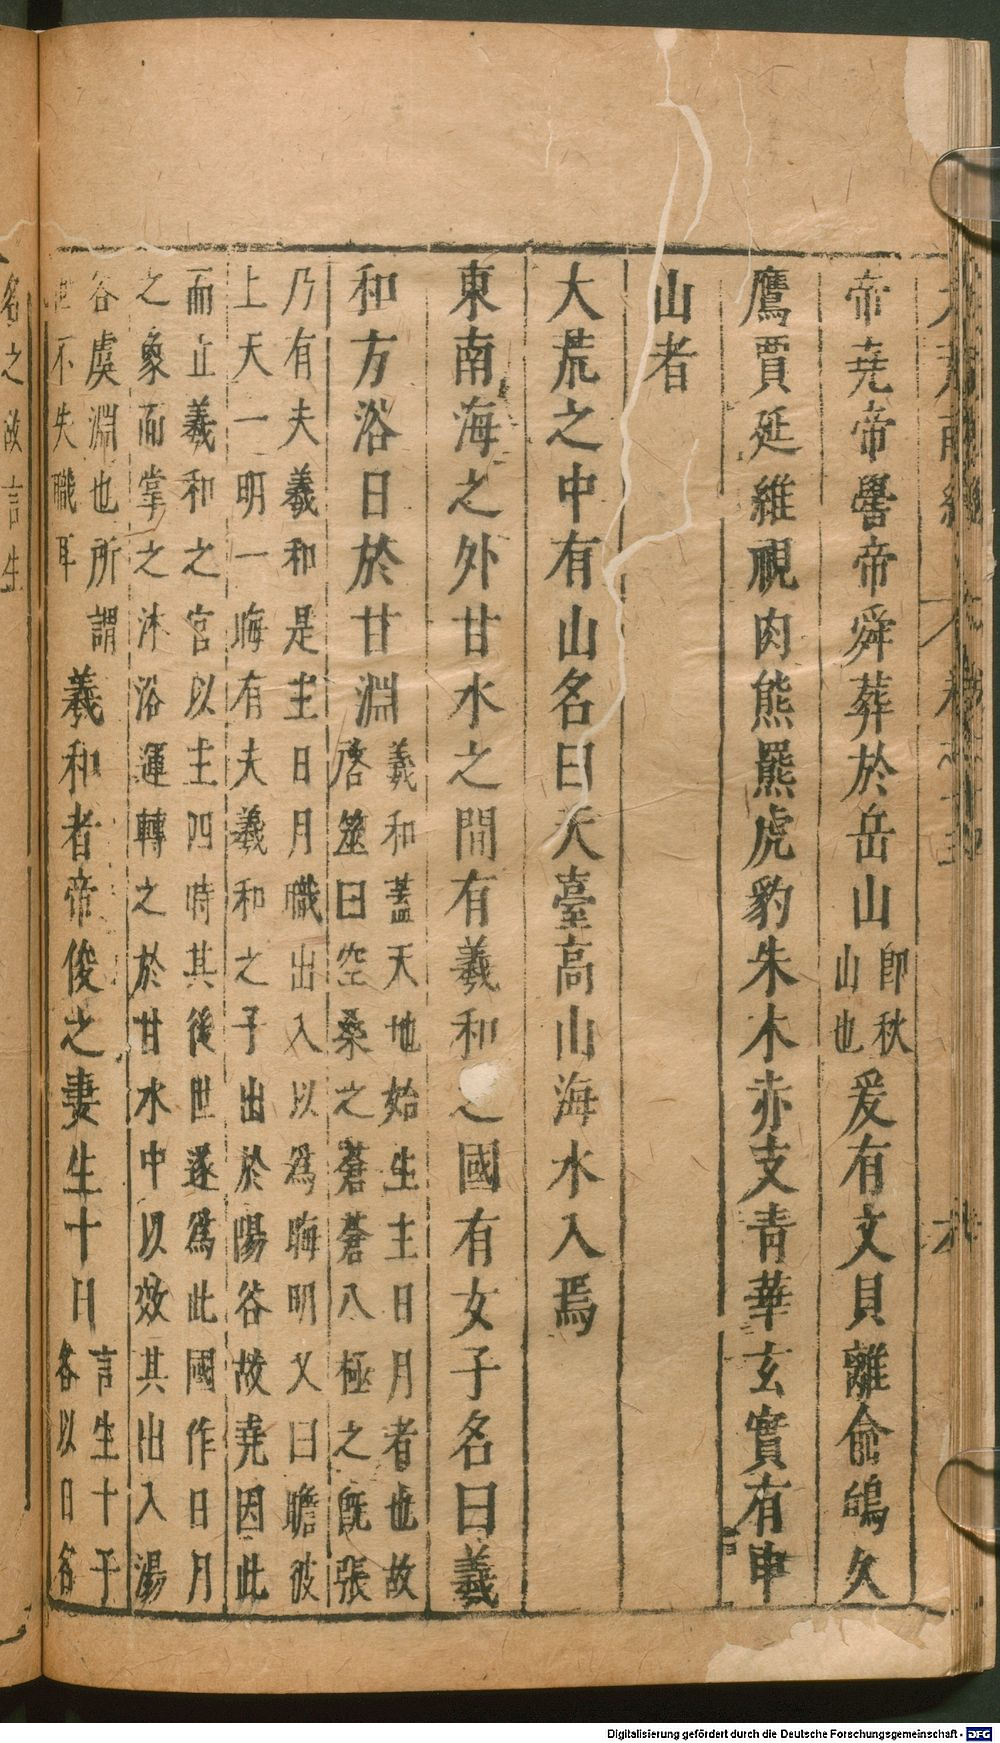 帝堯帝嚳帝舜葬於岳山即秋山也爰有文貝離俞鴟久
鷹賈延維視肉熊羆虎豹朱木赤支青華玄實有申
山者
大荒之中有山名曰天臺高山海水入焉
東南海之外甘水之間有羲和之國有女子名曰羲
和方浴日於甘淵羲和蓋天地始生主日月者也故
啓筮曰空桑之蒼蒼八極之旣張
乃有夫羲和是主日月職出入以爲晦明又曰瞻彼
上天一明一晦有夫羲和之子出於陽谷故堯因此
而立羲和之官以主四時其後世遂爲此國作日月
之象而掌之沐浴運轉之於甘水中以效其出入湯
谷虞淵也所謂
世不失職耳
羲和者帝俊之妻生十日言生十子
各以日各
名之故言生
Digitalisierung gefördert durch die Deutsche Forschungsgemeinschaft - DFG